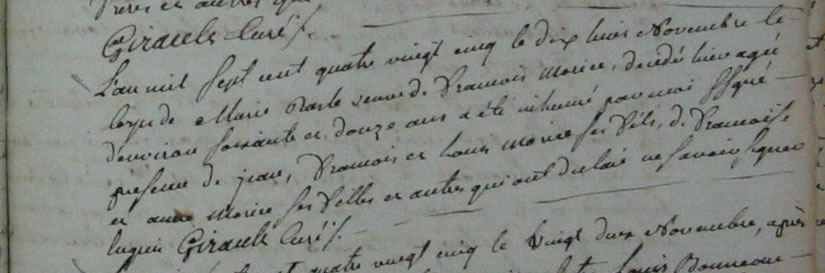 et autres qui
Girault Curé
L'an mil sept cent quatre vingt cinq le dix huit Novembre le
corps de Marie veuve de francois Morice, decedé hier agée
d'environ soixante et douze ans a été inhumé par moi ssgné
presence de jean, francois et Louis Morice ses fils, de francoise
et anne Morice ses filles et autres qui ont declaré ne savoir signer
Girault Curé
quatre vingt cinq le vingt deux Novembre, après
Louis Bonneau